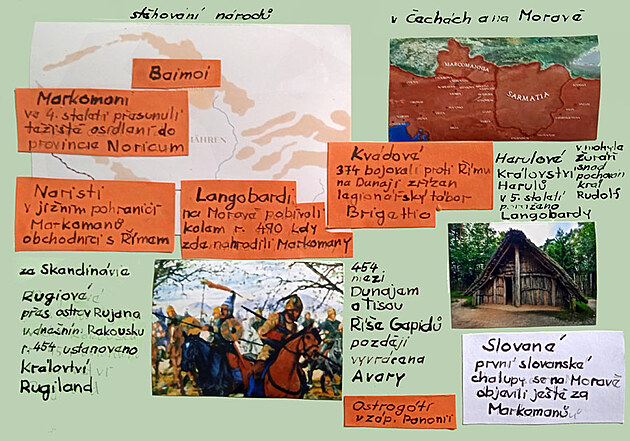 stěhování národů
v Čechách a na Moravě
Baimoi
Markomani
ve 4. stalatí přasunuli
těžiště osídlaní do
provincie Noricum
MÄHREN
MARCOMANNIA
SARMATIA
Naristi
v jižním pohraničí
Markomanů
obchodníci s Římem
Langobardi
na Moravě pobývali
kolem r. 490 kdy
zde nahradili Markomany
Kvádové
374 bojovali proti Římu
na Dunaji zřízen
legionářský tábor
Brigetio
Harulové
Království
Harulů
v 5. stalatí
Langobardy
v mohyla
Žuráň
snad
pochován
král
Rudolf
za Skandinávie
Rugiové
přas ostrov Rujana
v dnešním Rakousku
r. 454 ustanoveno
Kralovství
Rugiland
454
mezi
Dunajam
a Tisou
Říše Gapidů
pozdáji
vyvrácena
Avary
Ostrogóti
v záp. Panonii
Slované
první slovanské
chalupy se na Moravě
objavili ještě za
Markomanů